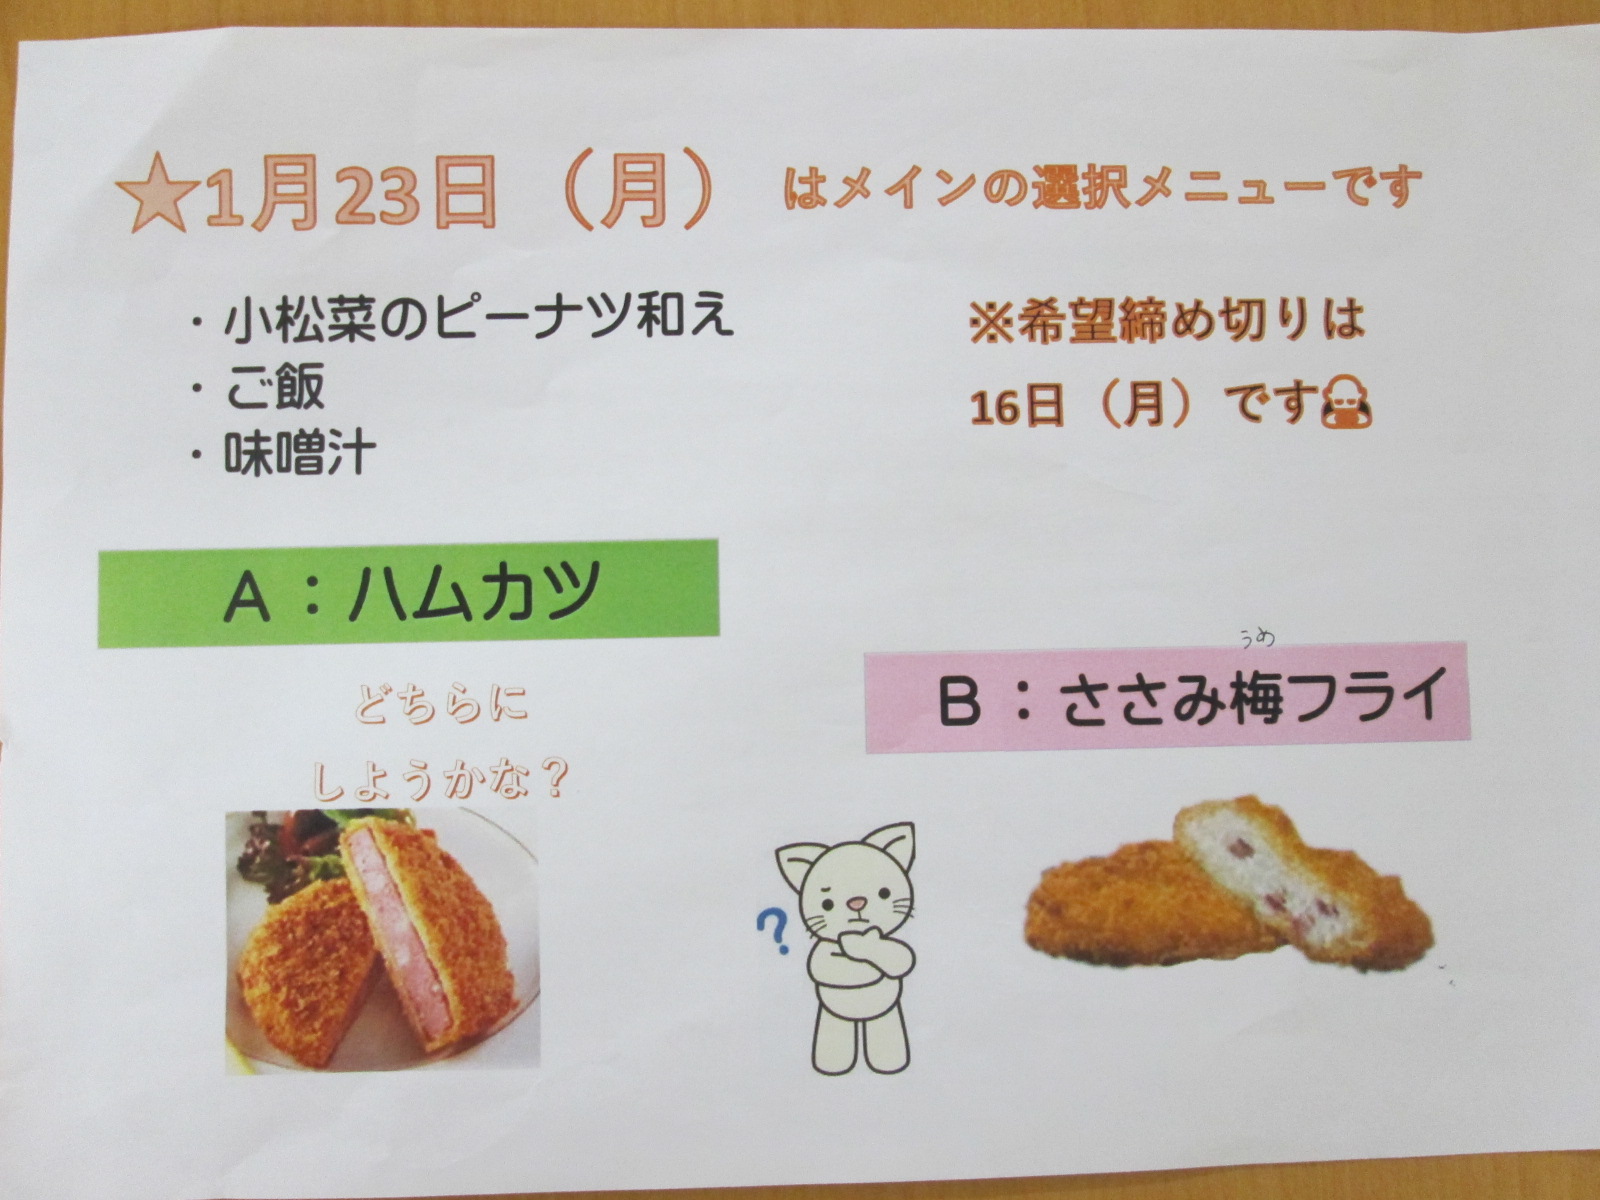 ★1月23日（月） はメインの選択メニューです
・小松菜のピーナツ和え
・ご飯
・味噌汁
※希望締め切りは
16日（月）です
A：ハムカツ
どちらに
しようかな？
うめ
B：ささみ梅フライ
?